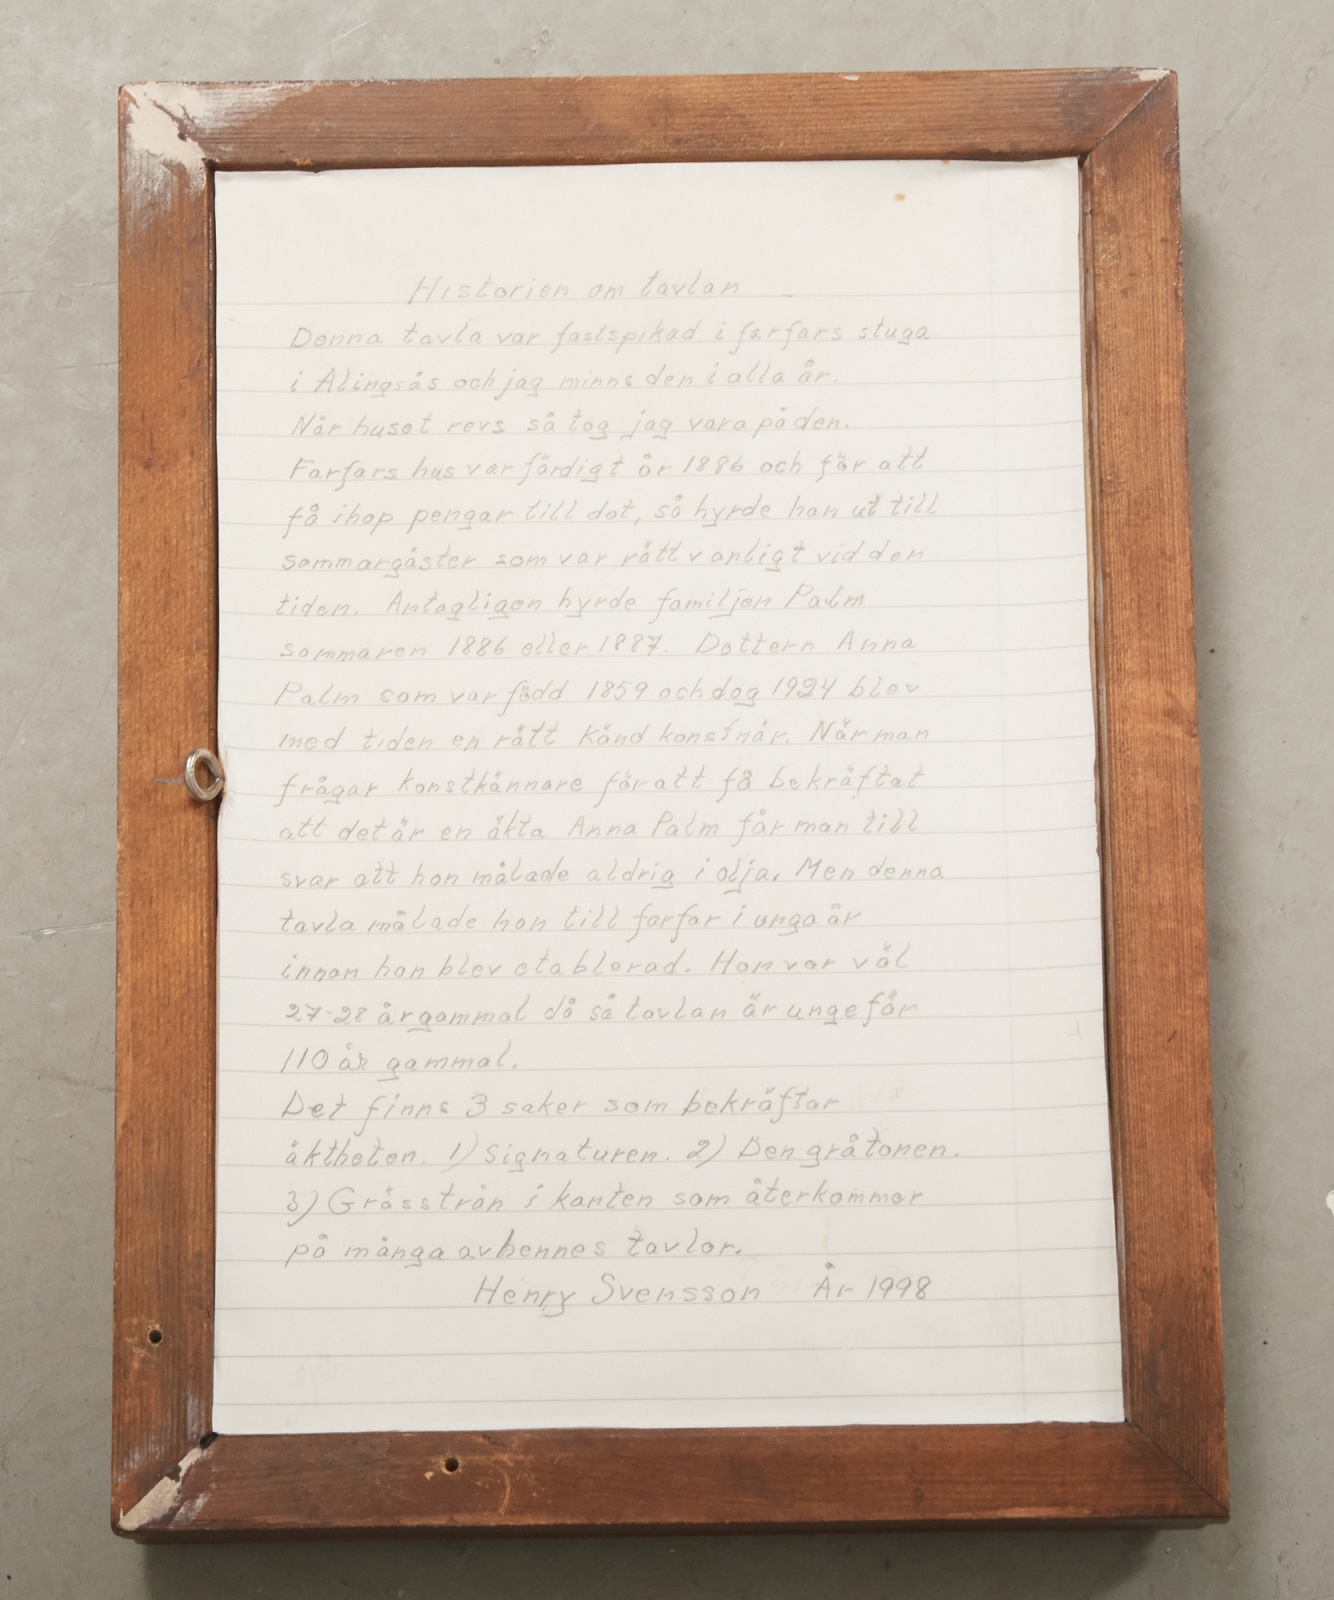 Historien om tavlan
Denna tavla var fastspikad i farfars stuga
i Alingsås och jag minns den i alla år.
När huset revs så tog jag vara på den.
Farfars hus var färdigt år 1886 och för att
få ihop pengar till det, så hyrde han ut till
sommargäster som var rätt vanligt vid den
tiden. Antagligen hyrde familjen Palm
sommaren 1886 eller 1887. Dottern Anna
Palm som var född 1859 och dog 1924 blev
med tiden en rätt känd konstnär. När man
frågar konstkännare för att få bekräftat
att det är en äkta Anna Palm får man till
svar att hon målade aldrig i olja. Men denna
tavla målade hon till farfar i unga år
innan hon blev etablerad. Hon var väl
27-28 år gammal då så tavlan är ungefär
110 år gammal.
Det finns 3 saker som bekräftar
äktheten. 1) Signaturen. 2) Den gråtonen.
3) Grässtrån i kanten som återkommer
på många av hennes tavlor.
Henry Svensson År 1998